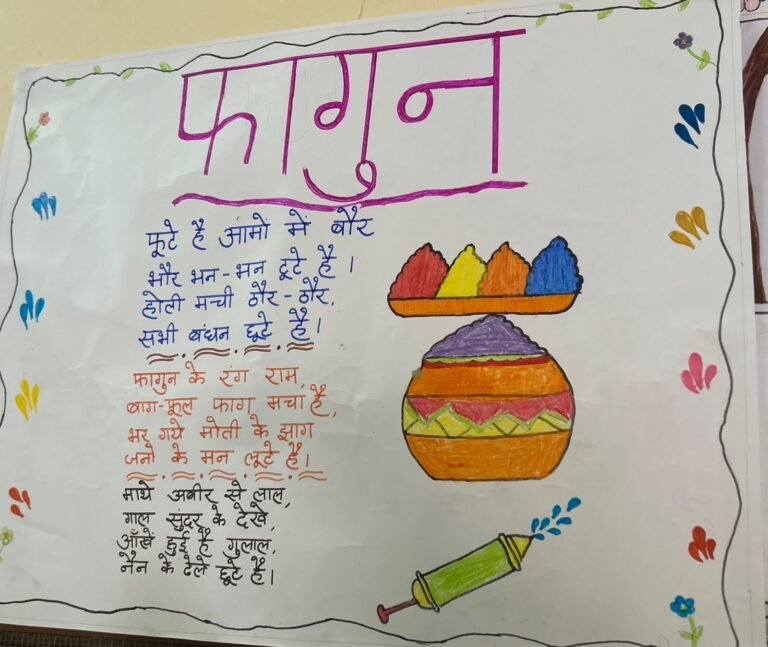 फागुन
फूटे है आमों में बौर
भौर भन-भन टूटे है।
होली मची ठौर-ठौर,
सभी बंधन छूटे है।
फागुन के रंग राम,
बाग-फूल फाग मचा है,
भर गये मोती के झाग
जनो के मन लूटे है।
माथे अबीर से लाल,
गाल सुंदर के देखे,
आँखे हुई है गुलाल,
नैन के ढेले छूटे है।